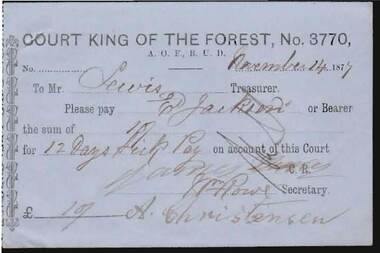 COURT KING OF THE FOREST, No. 3770,
A. O. F., B. U. D.
No. November 14 1877
To Mr. Lewis Treasurer.
Please pay E Jackson or Bearer
the sum of
for 12 Days Sick Pay on account of this Court
C. R.
Rowe Secretary.
£ A. Christensen